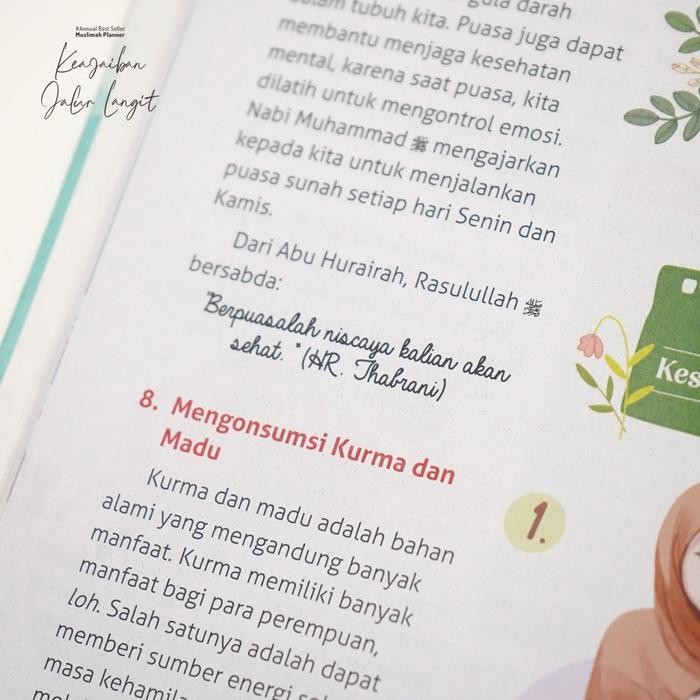 #Annual Best Seller
Muslimah Planner
Keajaiban
Jalur Langit
gula darah
dalam tubuh kita. Puasa juga dapat
membantu menjaga kesehatan
mental, karena saat puasa, kita
dilatih untuk mengontrol emosi.
Nabi Muhammad ﷺ mengajarkan
kepada kita untuk menjalankan
puasa sunah setiap hari Senin dan
Kamis.
Dari Abu Hurairah, Rasulullah ﷺ
bersabda:
"Berpuasalah niscaya kalian akan
sehat. "(HR. Thabrani)
8. Mengonsumsi Kurma dan
Madu
Kurma dan madu adalah bahan
alami yang mengandung banyak
manfaat. Kurma memiliki banyak
manfaat bagi para perempuan,
loh. Salah satunya adalah dapat
memberi sumber energi
masa
Kes
1.